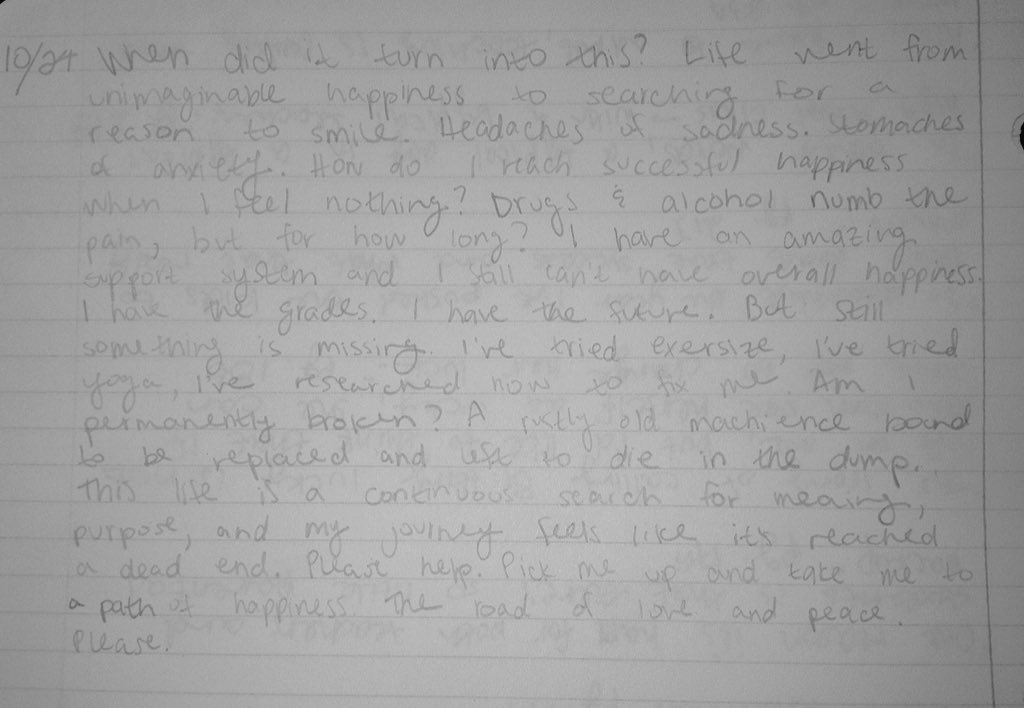 10/24 When did it turn into this? Life went from
unimaginable happiness to searching for a
reason to smile. Headaches of sadness. Stomaches
of anxiety. How do I reach successful happiness
when I feel nothing? Drugs & alcohol numb the
pain, but for how long? I have an amazing
support system and I still can't have overall happiness.
I have the grades. I have the future. But still
something is missing. I've tried exersize, I've tried
yoga, I've researched how to fix me. Am I
permanently broken? A rustly old machience bound
to be replaced and left to die in the dump.
This life is a continuous search for meaing,
purpose, and my journey feels like it's reached
a dead end. Please help. Pick me up and take me to
a path of happiness. The road of love and peace.
Please.